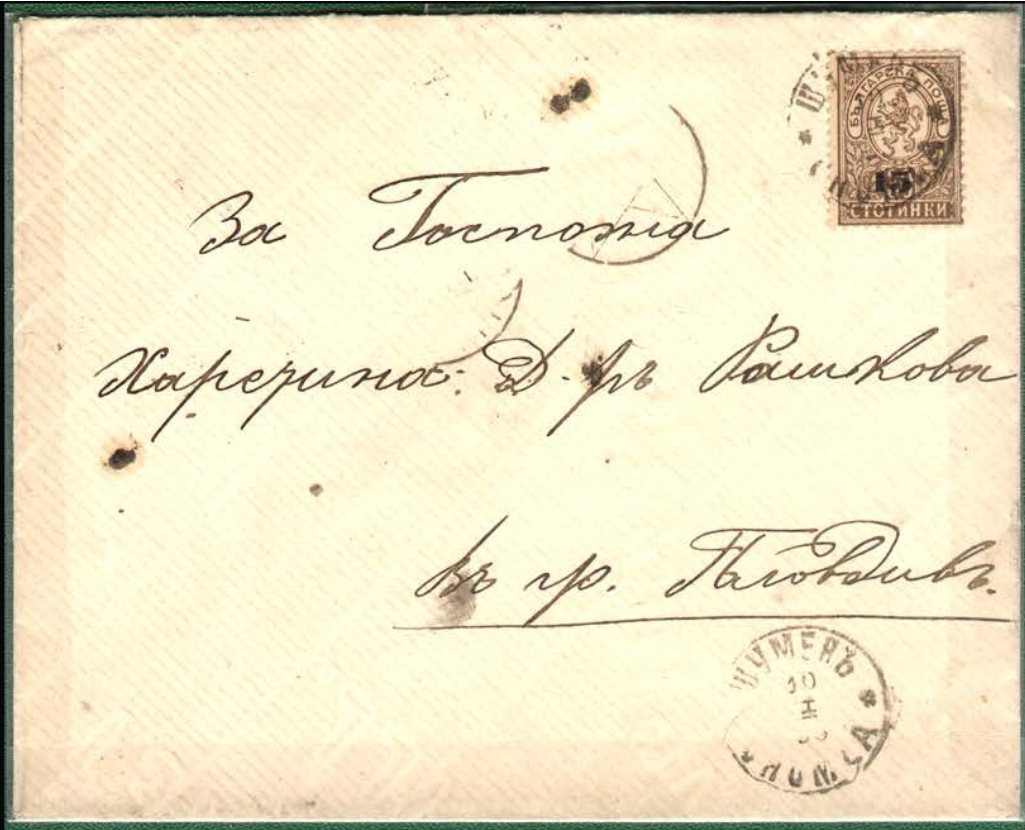 БЪЛГАРСКА ПОЩА
15
СТОТИНКИ
За Госпожа
Д-ръ Рашкова
въ гр. Пловдивъ.
ШУМЕНЪ
10
II